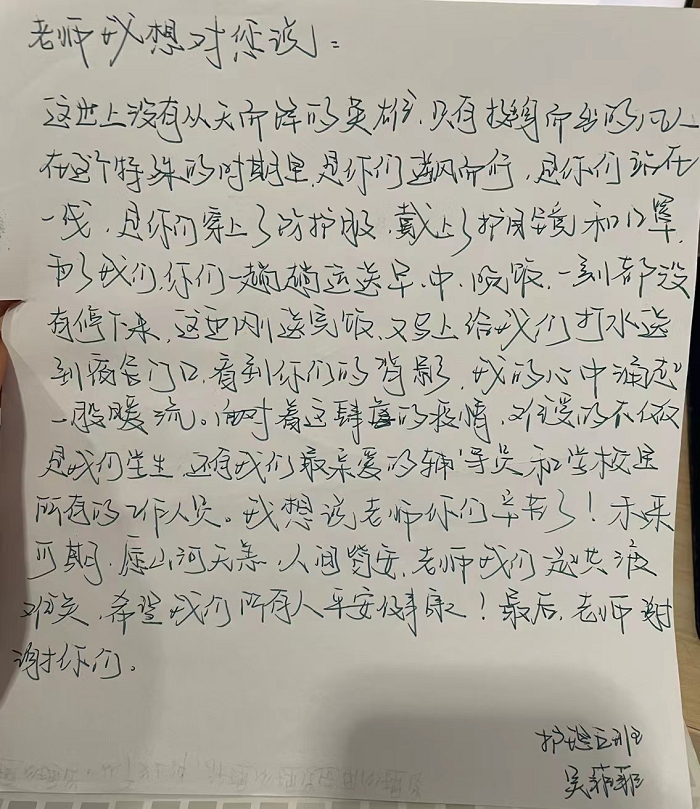 老师我想对您说：
这世上没有从天而降的英雄，只有挺身而出的凡人
在这个特殊的时期里，是你们逆风而行，是你们站在
一线，是你们穿上了防护服，戴上了护目镜和口罩，
为了我们，你们一趟趟运送早、中、晚饭，一刻都没
有停下来，这边刚送完饭，又马上给我们打水送
到宿舍门口，看到你们的背影，我的心中涌起
一股暖流。面对着这肆虐的疫情，难受的不仅仅
是我们学生，还有我们最亲爱的辅导员和学校里
所有的工作人员。我想说老师你们辛苦了！未来
可期，愿山河无恙，人间皆安，老师我们一起共渡
难关，希望我们所有人平安健康！最后，老师谢
谢你们。
护理五班
吴菲菲